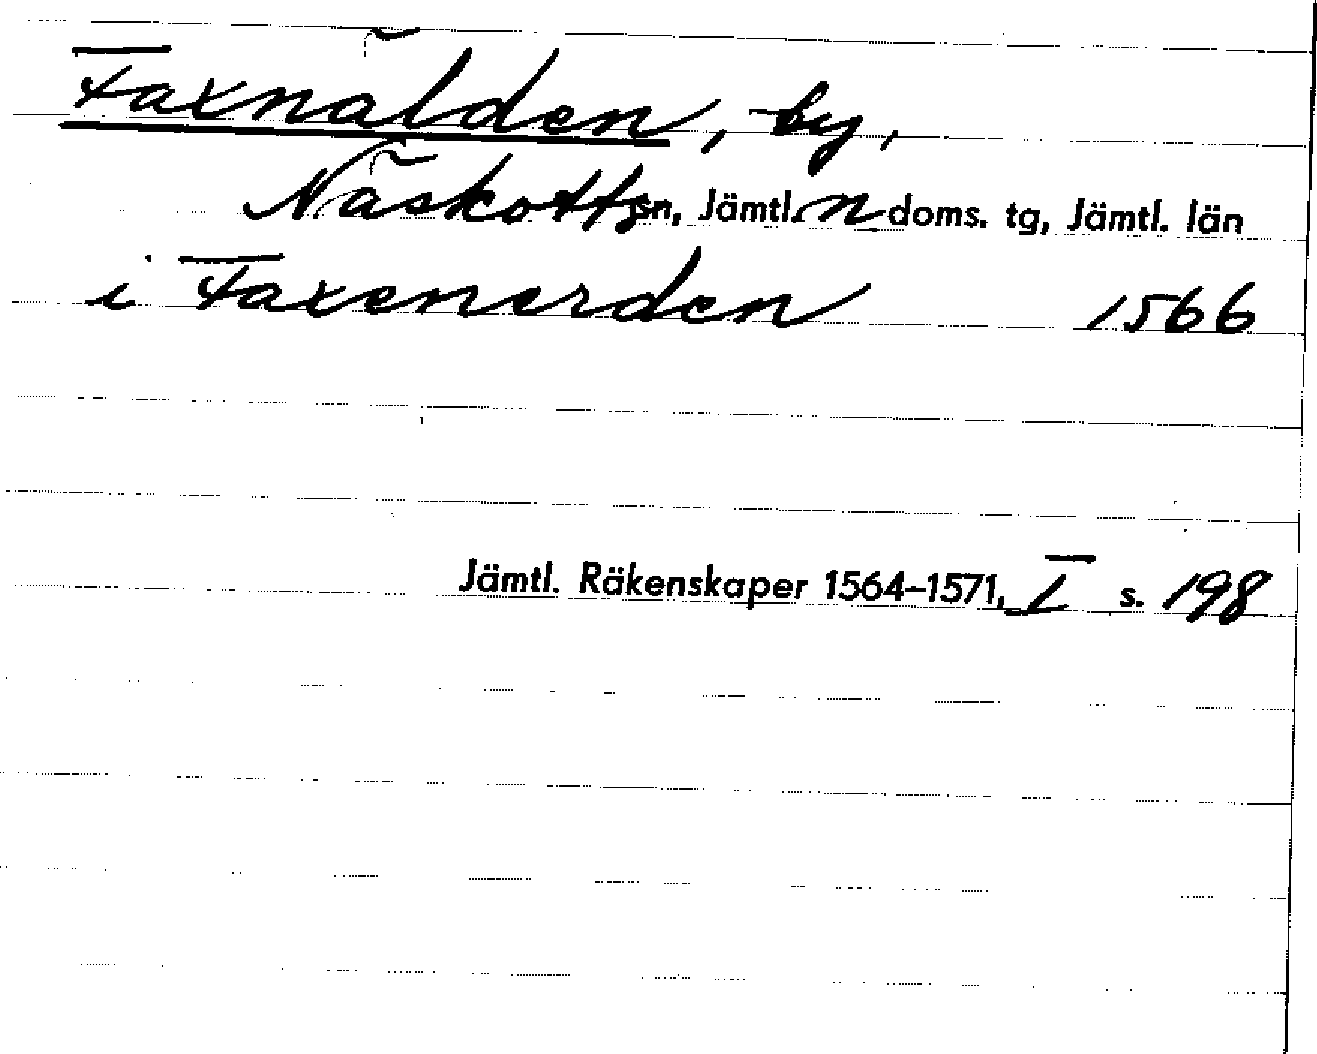 Faxnälden, by,
Näskotts sn, Jämtl. n doms. tg, Jämtl. län
i Faxenerden 1566
Jämtl. Räkenskaper 1564–1571, I s. 198